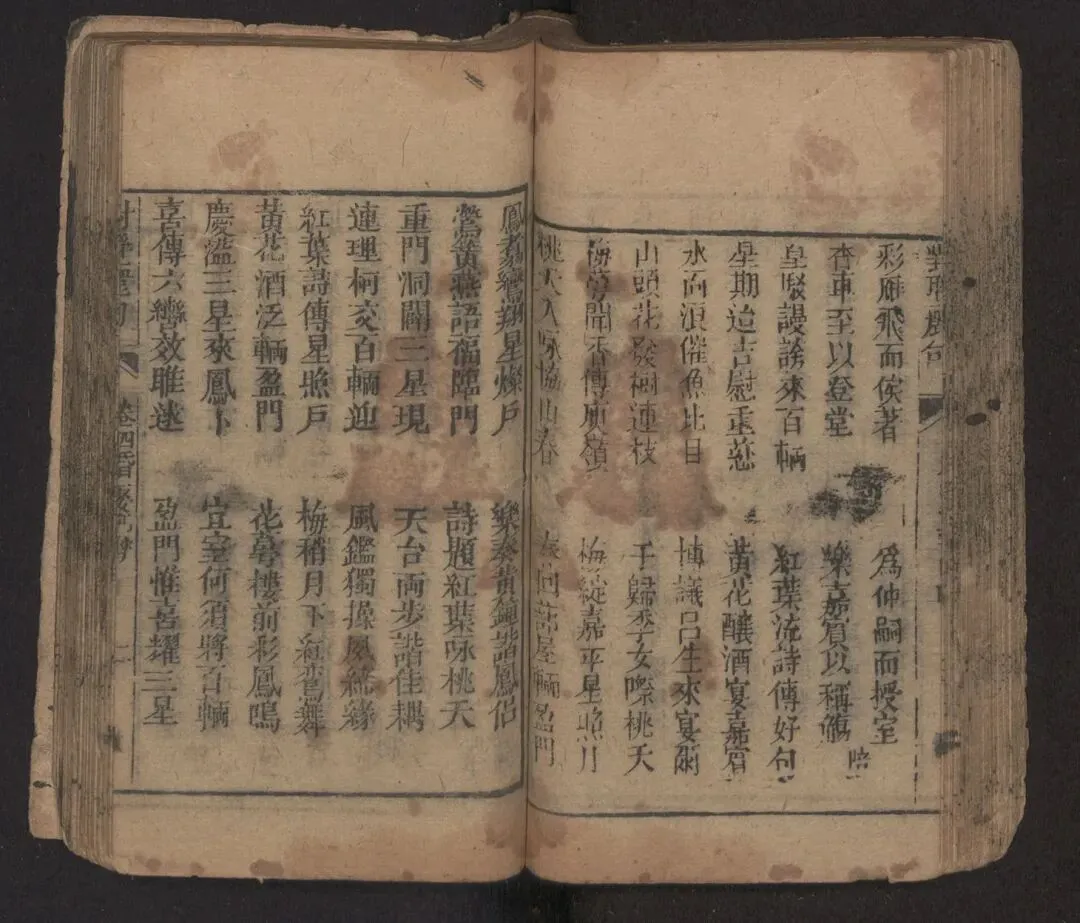 彩雁飛而俟著
為仲嗣而授室
杏車至以登堂
樂嘉賓以稱觴
皇駁謾誇來百輛
紅葉流詩傳好句
星期迨吉慰重慈
黃花釀酒宴嘉賓
水面浪催魚比目
博議呂生來宴爾
山頭花發樹連枝
于歸季女際桃夭
梅萼開香傳庾嶺
梅綻嘉平星照戶
桃夭入咏協山春
春回蔀屋輛盈門
鳳翥鸞翔星燦戶
樂奏黃鐘諧鳳侶
鶯簧燕語福臨門
詩題紅葉咏桃夭
重門洞闢三星現
天台両步諧佳耦
連理柯交百輛迎
風鑑獨操夙締緣
紅葉詩傳星照戶
梅稍月下紅鸞舞
黃花酒泛輛盈門
花萼樓前彩鳳鳴
慶溢三星來鳳卜
宜室何須將百輛
喜傳六轡效雎逑
盈門惟喜耀三星
卷四
二